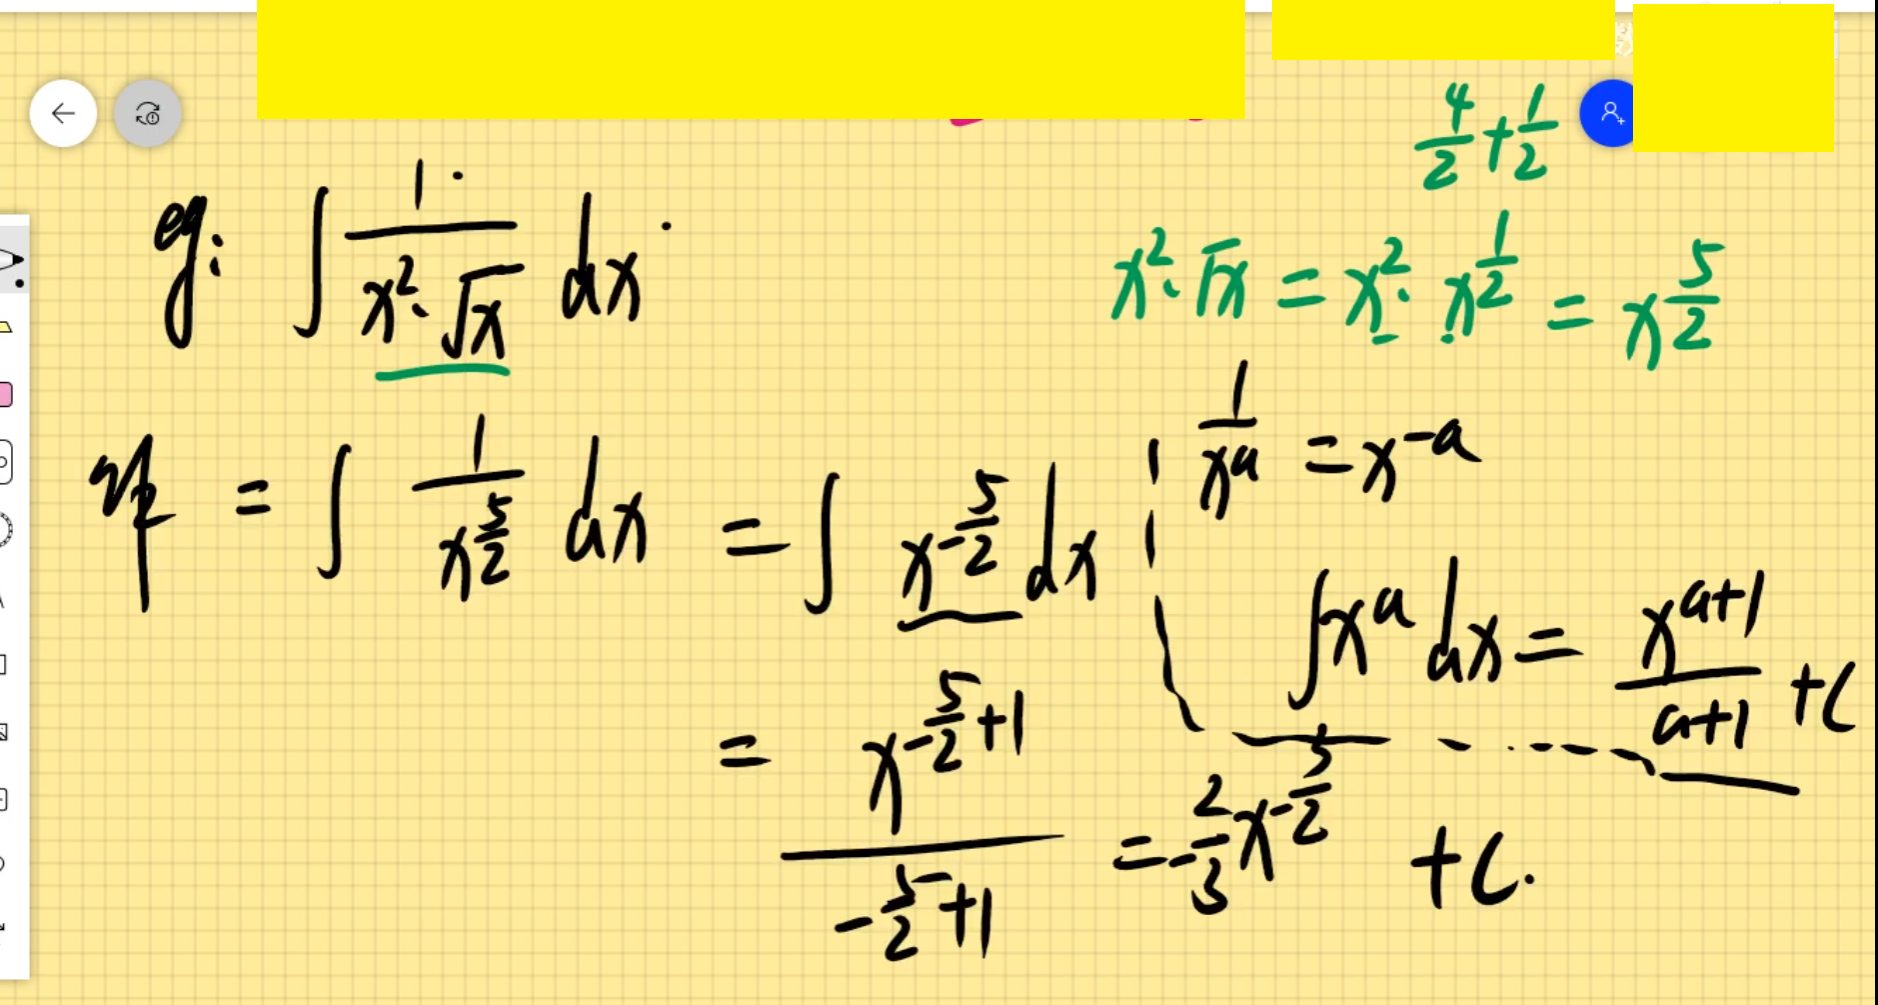 4/2 + 1/2
eg: ∫ 1/(x²·√x) dx
x²·√x = x²·x^(1/2) = x^(5/2)
1/x^a = x^(-a)
= ∫ 1/x^(5/2) dx = ∫ x^(-5/2) dx
∫ x^a dx = x^(a+1)/(a+1) + C
= x^(-5/2+1)/(-5/2+1) = -2/3 x^(-5/2) + C.